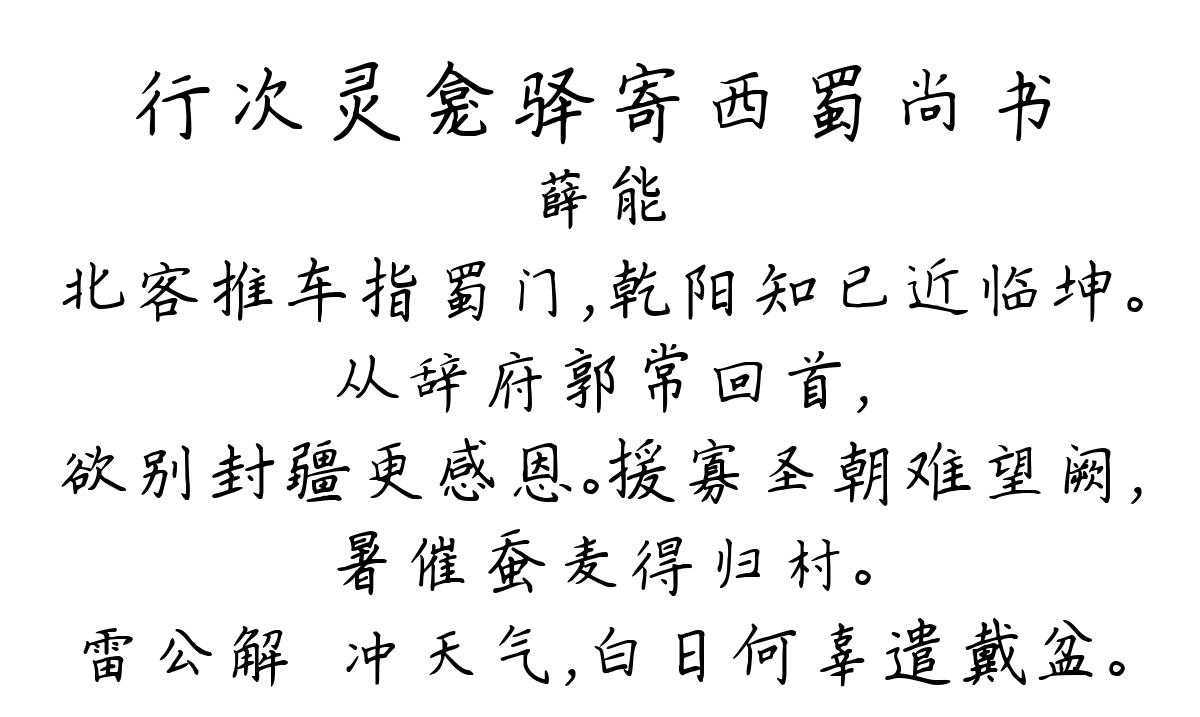 行次灵龛驿寄西蜀尚书
薛能
北客推车指蜀门,乾阳知已近临坤。
从辞府郭常回首,
欲别封疆更感恩。援寡圣朝难望阙,
暑催蚕麦得归村。
雷公解 冲天气,白日何辜遣戴盆。